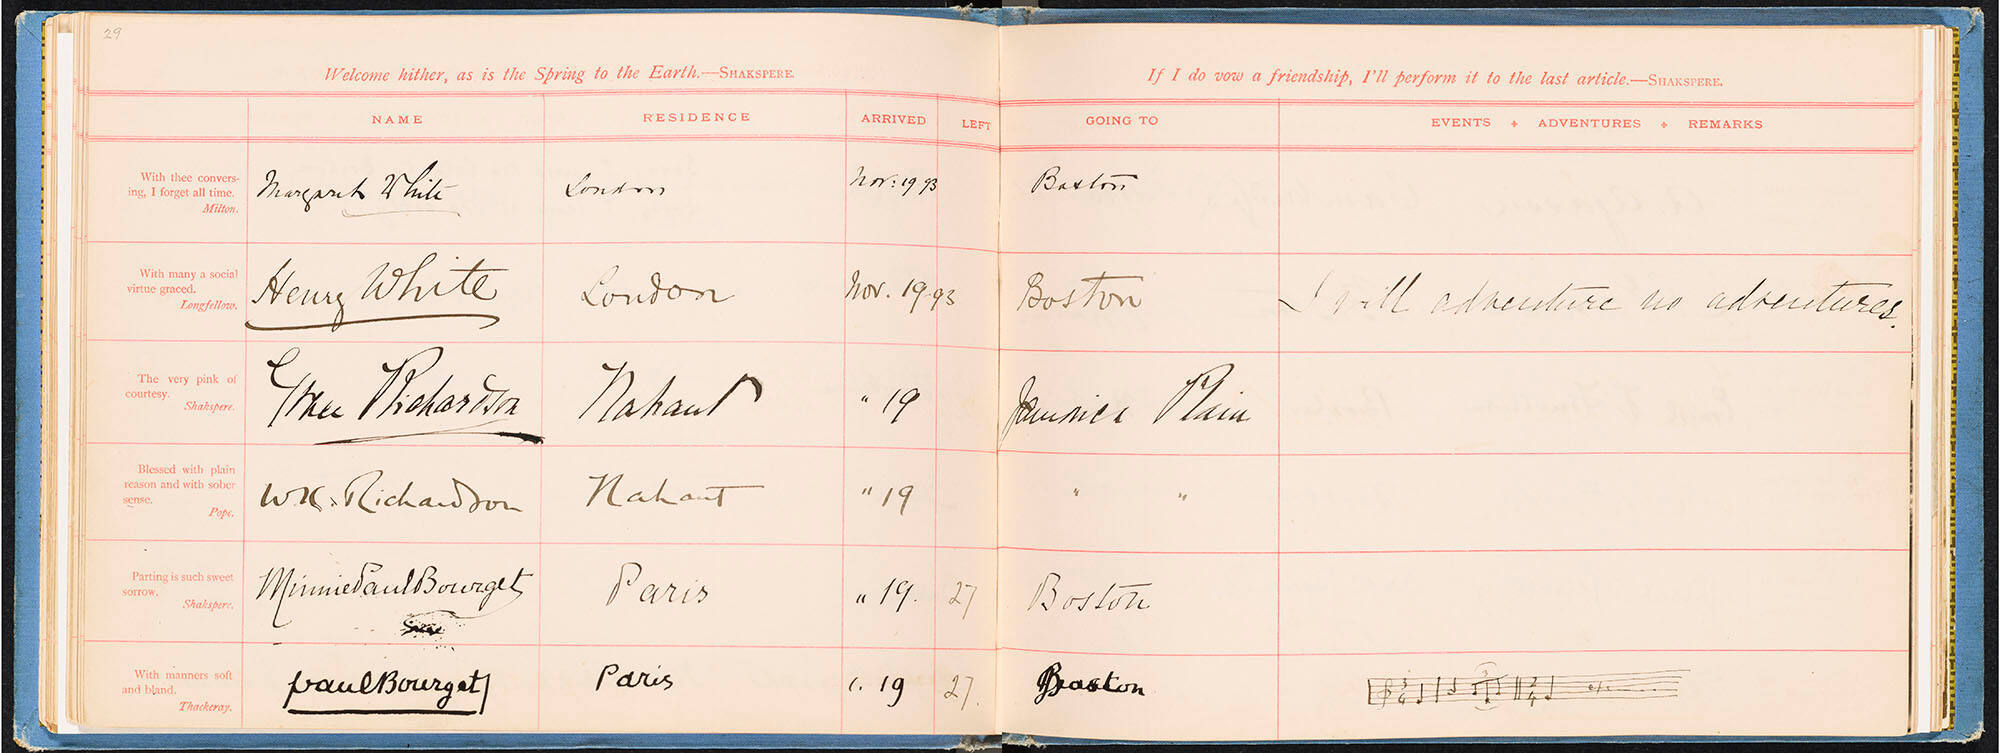 29
Welcome hither, as is the Spring to the Earth.—SHAKSPERE.
If I do vow a friendship, I'll perform it to the last article.—SHAKSPERE.
NAME RESIDENCE ARRIVED LEFT GOING TO EVENTS + ADVENTURES + REMARKS
With thee convers-
ing, I forget all time.
Milton.
Margaret White London Nov: 19 93 Boston
With many a social
virtue graced.
Longfellow.
Henry White London Nov. 19 93 Boston I will adventure no adventures.
The very pink of
courtesy.
Shakspere.
Richardson Nahant " 19 Jamaica Plain
Blessed with plain
reason and with sober
sense.
Pope.
WK. Richardson Nahant " 19 " "
Parting is such sweet
sorrow.
Shakspere.
Minnie Paul Bourget Paris " 19. 27 Boston
With manners soft
and bland.
Thackeray.
Paul Bourget Paris 19 27. Boston